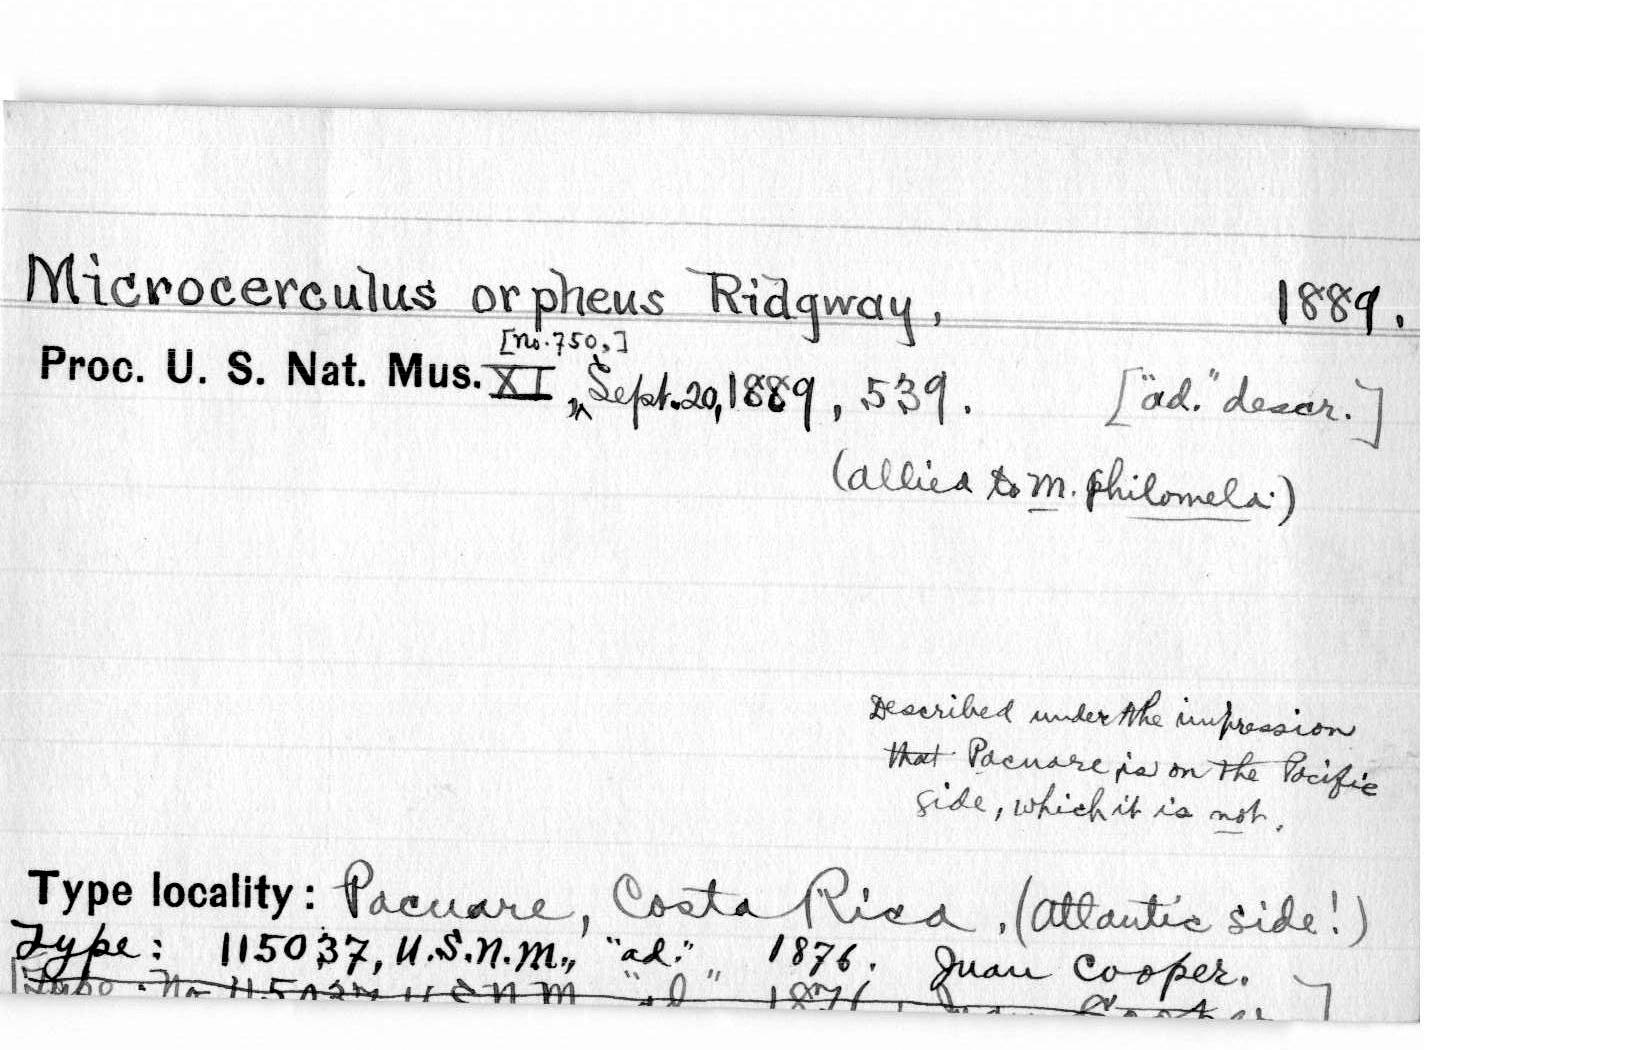 Microcerculus orpheus Ridgway, 1889.
[no. 750,]
Proc. U. S. Nat. Mus. XI, Sept. 20, 1889, 539. ["ad." descr.]
(allied to M. philomela.)
Described under the impression
that Pacuare is on the Pacific
side, which it is not.
Type locality: Pacuare, Costa Rica. (Atlantic side!)
Type: 115037, U.S.N.M., "ad." 1876. Juan Cooper.
[Type. No 115037 U S N M "ad" 1876, Juan Cooper ]